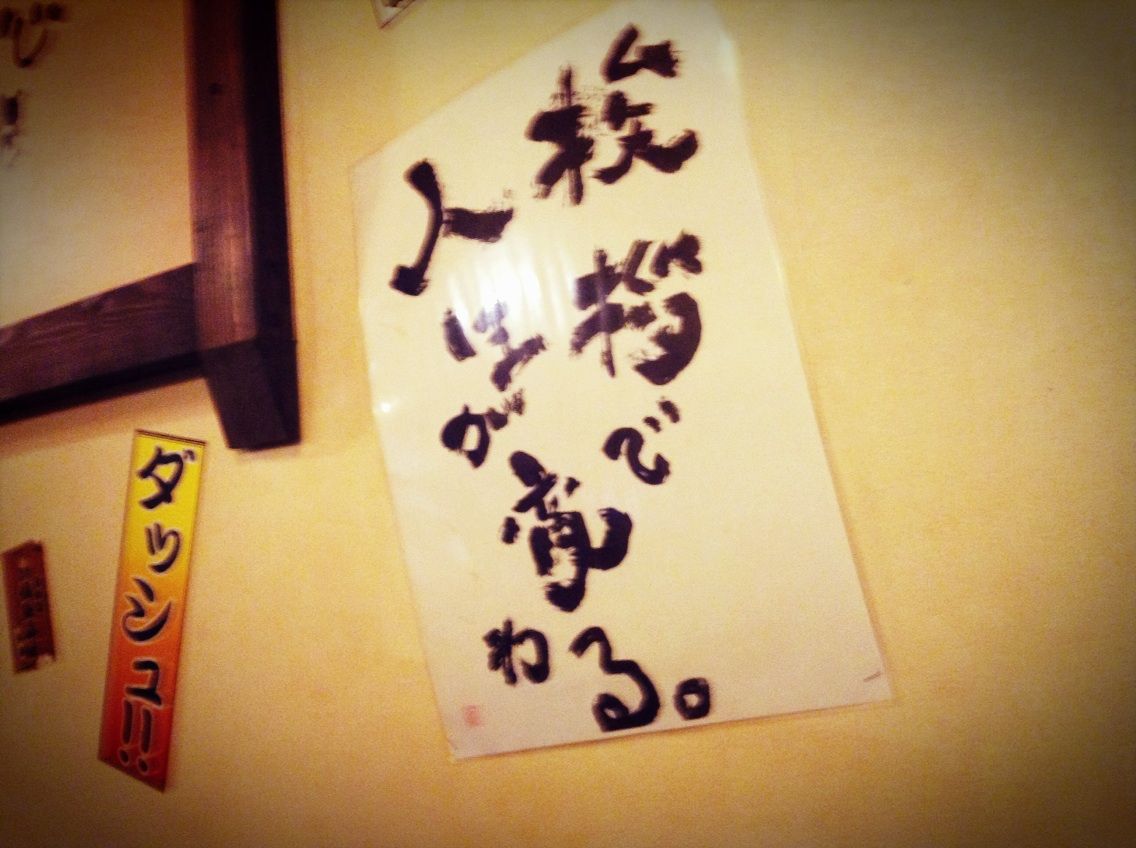 挨拶で
人生が変わる。
ダッシュ!!